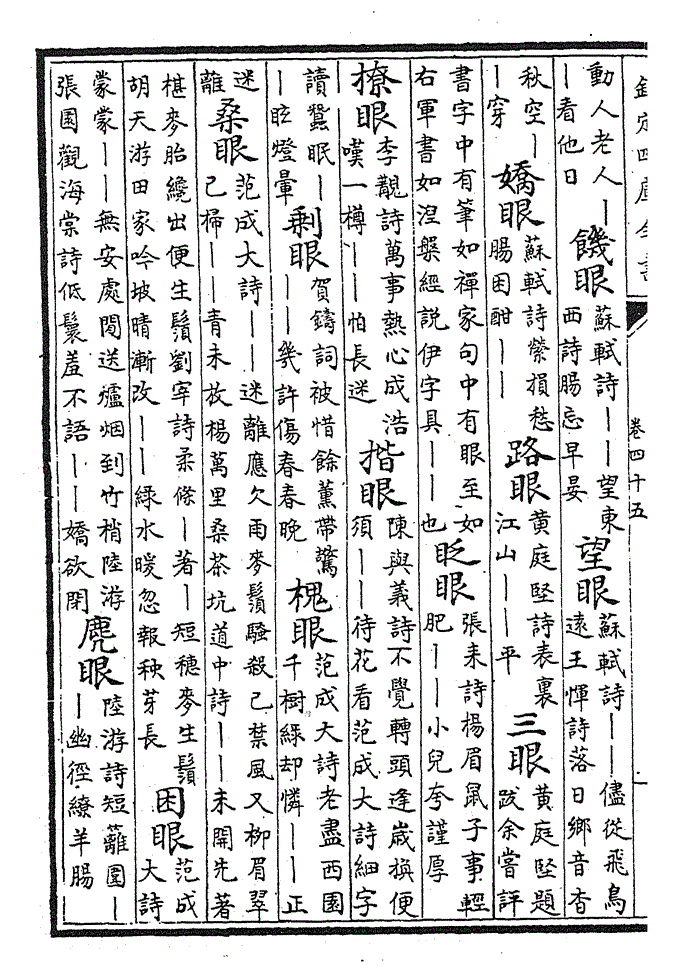 欽定四庫全書 卷四十五
動人老人丨丨看他日 饑眼 蘇軾詩丨丨望東西詩腸忘早晏 望眼 蘇軾詩丨丨儘從飛鳥遠王惲詩落日鄉音杳
秋空丨丨穿 嬌眼 蘇軾詩縈損愁腸困酣丨丨 路眼 黄庭堅詩表裏江山丨丨平 三眼 黄庭堅題跋余嘗評
書字中有筆如禪家句中有眼至如右軍書如涅槃經説伊字具丨丨也 眨眼 張耒詩楊眉鼠子事輕肥丨丨小兒夸謹厚
撩眼 李靚詩萬事熱心成浩嘆一樽丨丨怕長迷 揩眼 陳與義詩不覺轉頭逢歲換便須丨丨待花看范成大詩細字
讀蠶眠丨丨眩燈暈 剩眼 賀鑄詞被惜餘薰帶驚丨丨幾許傷春春晚 槐眼 范成大詩老盡西園千樹緑却憐丨丨正
迷離 桑眼 范成大詩丨丨迷離應欠雨麥鬚騷殺已禁風又柳眉翠已掃丨丨青未放楊萬里桑茶坑道中詩丨丨未開先著
椹麥胎纔出便生鬚劉宰詩柔條丨著丨短穗麥生鬚胡天游田家吟坡晴漸改丨丨緑水暖忽報秧芽長 困眼 范成大詩
蒙蒙丨丨無安處閒送爐烟到竹梢陸游張園觀海棠詩低鬟羞不語丨丨嬌欲閉 麂眼 陸游詩短籬圍丨丨幽徑繚羊腸